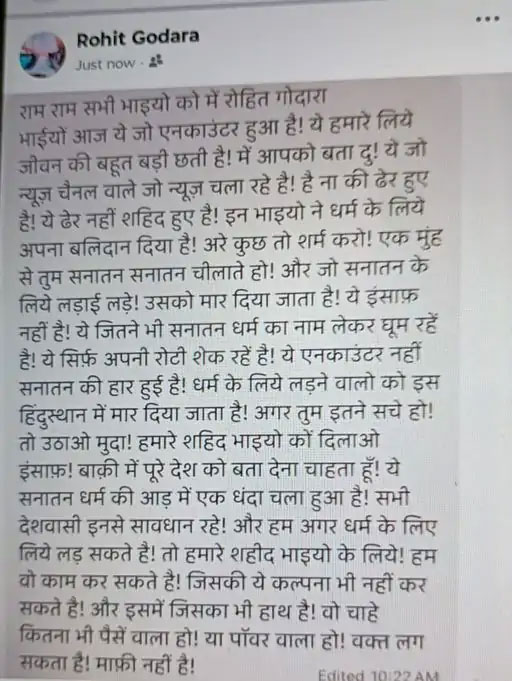 Rohit Godara
Just now ·
राम राम सभी भाइयो को में रोहित गोदारा
भाईयों आज ये जो एनकाउंटर हुआ है! ये हमारे लिये
जीवन की बहूत बड़ी छती है! में आपको बता दु! ये जो
न्यूज़ चैनल वाले जो न्यूज़ चला रहे है! है ना की ढेर हुए
है! ये ढेर नहीं शहिद हुए है! इन भाइयो ने धर्म के लिये
अपना बलिदान दिया है! अरे कुछ तो शर्म करो! एक मुंह
से तुम सनातन सनातन चीलाते हो! और जो सनातन के
लिये लड़ाई लड़े! उसको मार दिया जाता है! ये इंसाफ़
नहीं है! ये जितने भी सनातन धर्म का नाम लेकर घूम रहें
है! ये सिर्फ़ अपनी रोटी शेक रहें है! ये एनकाउंटर नहीं
सनातन की हार हुई है! धर्म के लिये लड़ने वालो को इस
हिंदुस्थान में मार दिया जाता है! अगर तुम इतने सचे हो!
तो उठाओ मुदा! हमारे शहिद भाइयो कों दिलाओ
इंसाफ़! बाक़ी में पूरे देश को बता देना चाहता हूँ! ये
सनातन धर्म की आड़ में एक धंदा चला हुआ है! सभी
देशवासी इनसे सावधान रहे! और हम अगर धर्म के लिए
लिये लड़ सकते है! तो हमारे शहीद भाइयो के लिये! हम
वो काम कर सकते है! जिसकी ये कल्पना भी नहीं कर
सकते है! और इसमें जिसका भी हाथ है! वो चाहे
कितना भी पैसें वाला हो! या पॉवर वाला हो! वक्त लग
सकता है! माफ़ी नहीं है!
Edited 10:22 AM